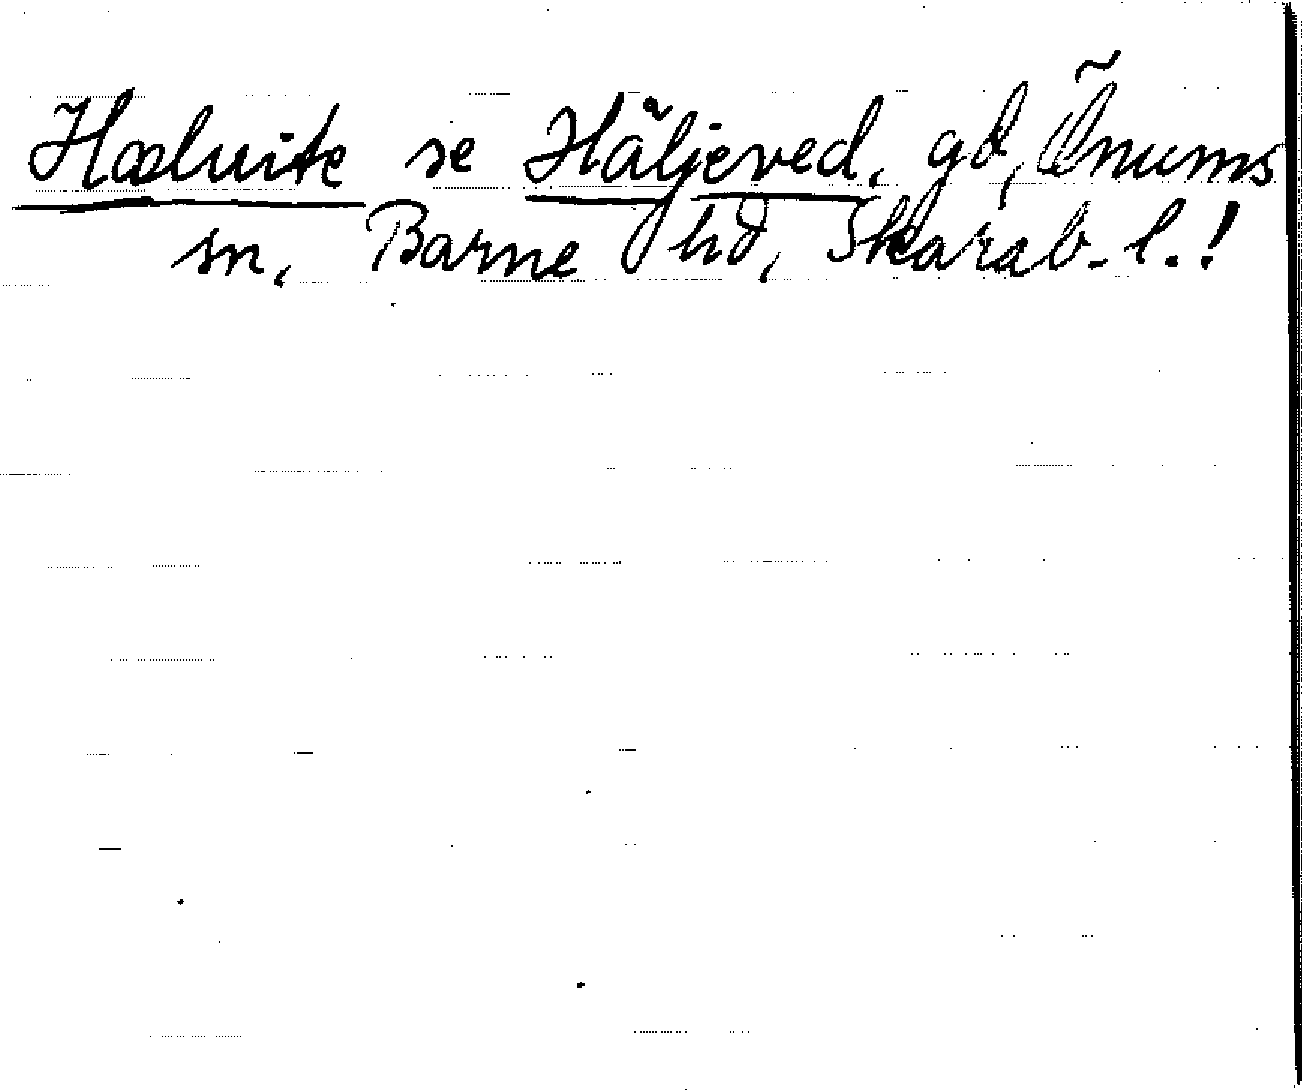 Hæluite se Häljeved, gd, Önums
sn, Barne hd, Skarab. l.!